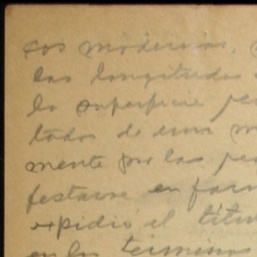 cos modernas,
las longitudes
la superficie
tados de una
mente por las
festarse en
expidió el
en los terminos